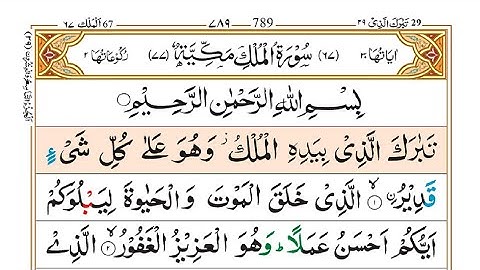 تَبٰرَكَ الَّذِىْ ٢٩ 29 789 ٧٨٩ اَلْمُلْك ٦٧ 67
اٰيَاتُهَا ٣٠ (٦٧) سُوْرَةُ الْمُلْكِ مَكِّيَّةٌ (٧٧) رُكُوْعَاتُهَا ٢
بِسْمِ اللّٰهِ الرَّحْمٰنِ الرَّحِيْمِ
تَبٰرَكَ الَّذِىْ بِيَدِهِ الْمُلْكُ ز وَهُوَ عَلٰى كُلِّ شَىْءٍ
قَدِيْرُۨ ۙ﴿۱﴾ الَّذِىْ خَلَقَ الْمَوْتَ وَالْحَيٰوةَ لِيَبْلُوَكُمْ
اَيُّكُمْ اَحْسَنُ عَمَلًا ؕ وَهُوَ الْعَزِيْزُ الْغَفُوْرُ ۙ﴿۲﴾ الَّذِىْ